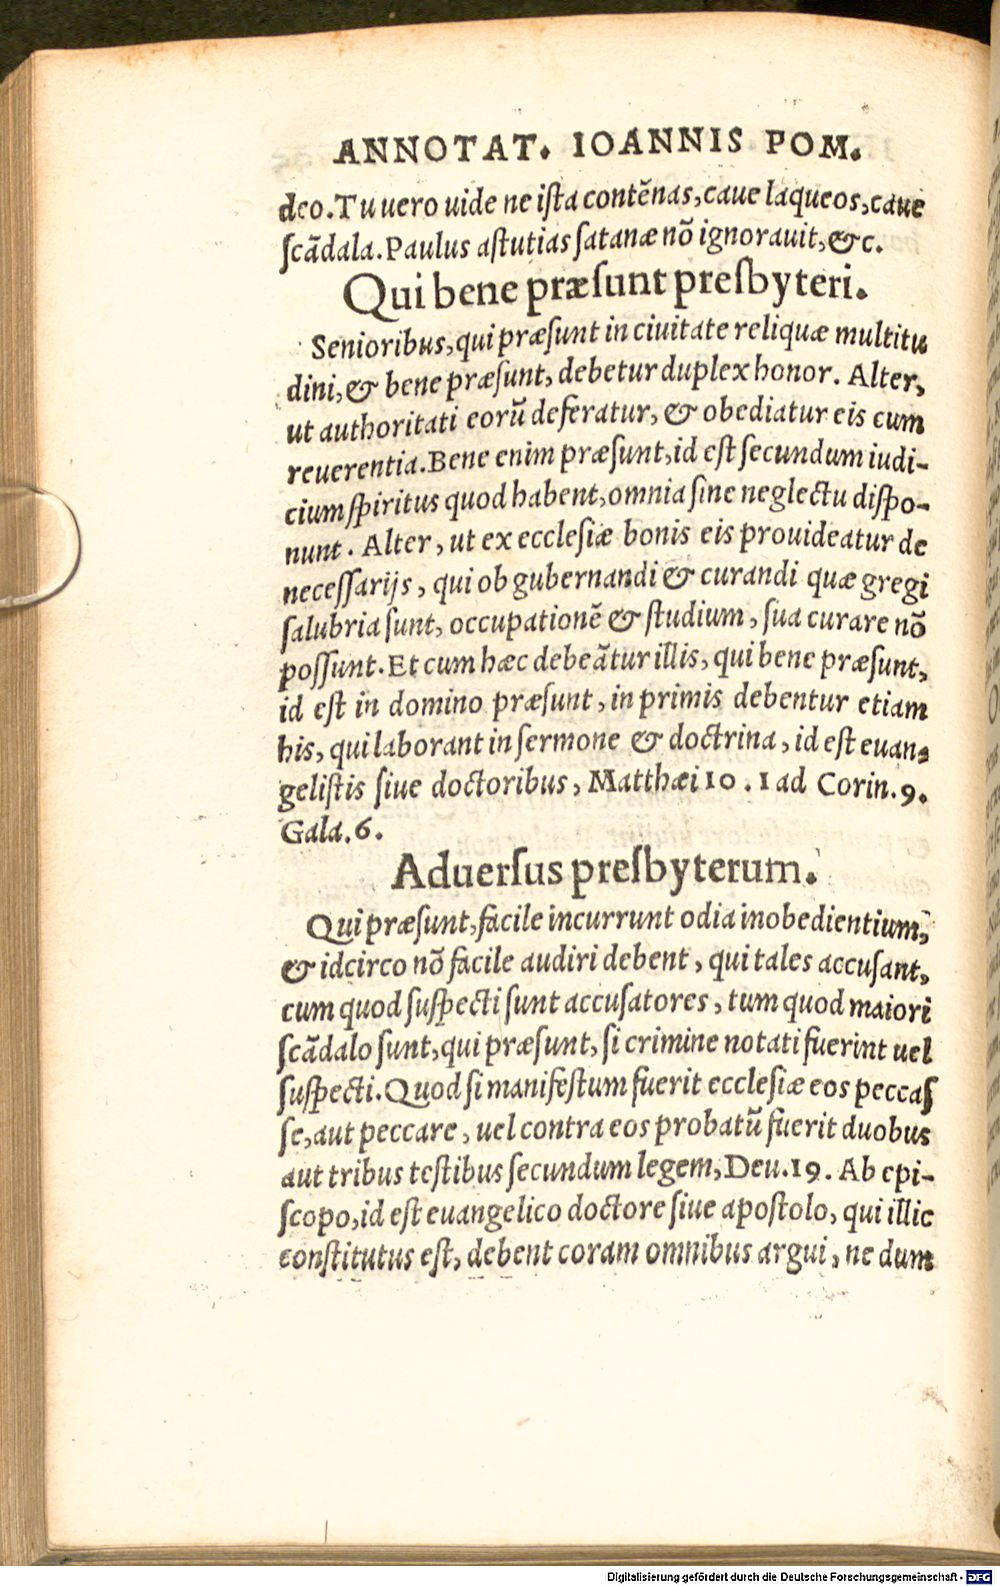 ANNOTAT. IOANNIS POM.
deo. Tu uero uide ne iſta contẽnas, caue laqueos, caue
ſcãdala. Paulus aſtutias ſatanæ nõ ignorauit, &c.
Qui bene præſunt preſbyteri.
Senioribus, qui præſunt in ciuitate reliquæ multitu
dini, & bene præſunt, debetur duplex honor. Alter,
ut authoritati eorũ deferatur, & obediatur eis cum
reuerentia. Bene enim præſunt, id eſt ſecundum iudi-
cium ſpiritus quod habent, omnia ſine neglectu diſpo-
nunt. Alter, ut ex eccleſiæ bonis eis prouideatur de
neceſſarijs, qui ob gubernandi & curandi quæ gregi
ſalubria ſunt, occupationẽ & ſtudium, ſua curare nõ
poſſunt. Et cum hæc debeãtur illis, qui bene præſunt,
id eſt in domino præſunt, in primis debentur etiam
his, qui laborant in ſermone & doctrina, id eſt euan-
geliſtis ſiue doctoribus, Matthæi 10. 1 ad Corin. 9.
Gala. 6.
Aduerſus preſbyterum.
Qui præſunt, facile incurrunt odia inobedientium,
& idcirco nõ facile audiri debent, qui tales accuſant,
cum quod ſuſpecti ſunt accuſatores, tum quod maiori
ſcãdalo ſunt, qui præſunt, ſi crimine notati fuerint uel
ſuſpecti. Quod ſi manifeſtum fuerit eccleſiæ eos peccaſ
ſe, aut peccare, uel contra eos probatũ fuerit duobus
aut tribus teſtibus ſecundum legem, Deu. 19. Ab epi-
ſcopo, id eſt euangelico doctore ſiue apoſtolo, qui illic
conſtitutus eſt, debent coram omnibus argui, ne dum
Digitalisierung gefördert durch die Deutsche Forschungsgemeinschaft - DFG